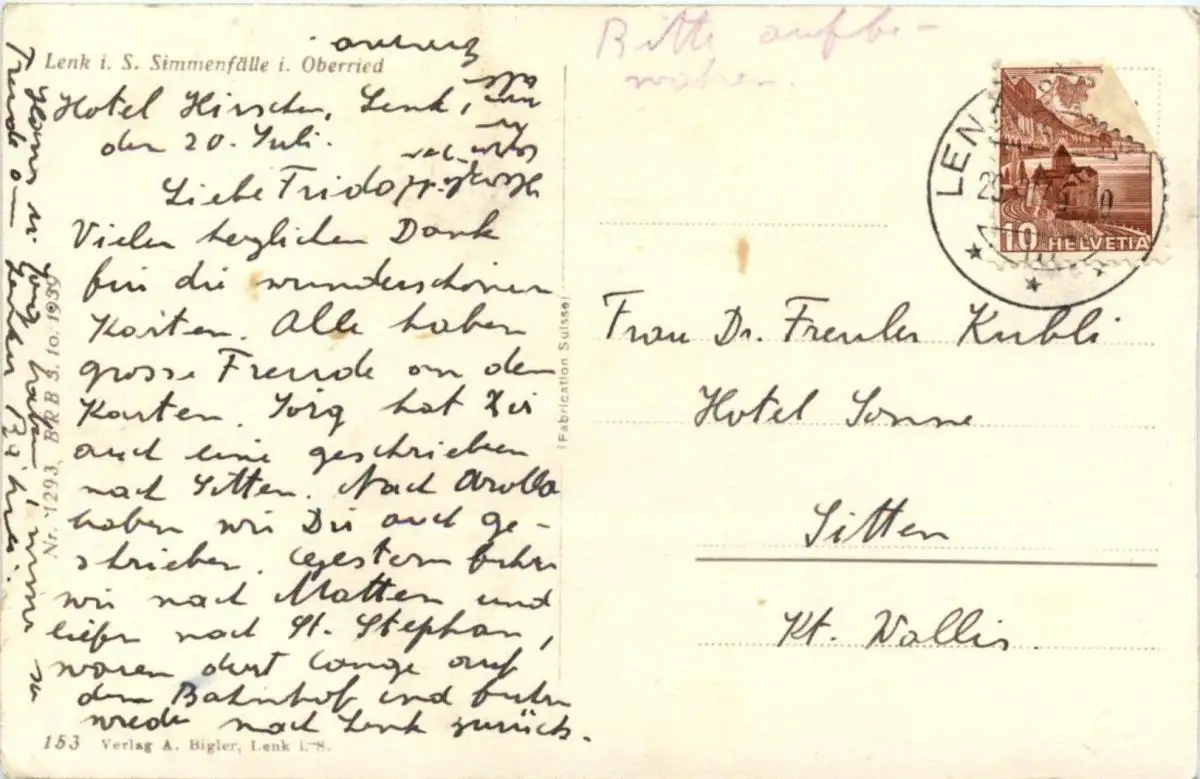 Lenk i. S. Simmenfälle i. Oberried
Hotel Hirschen, Lenk,
den 20. Juli.
Liebe
Vielen herzlichen Dank
für die wunderschönen
Karten. Alle haben
grosse Freude an den
Karten. Jörg hat Dir
auch eine geschrieben
nach Sitten. Nach Arolla
haben wir Dir auch ge-
schrieben. Gestern fuhren
wir nach Matten und
liefen nach St. Stephan,
waren dort lange auf
dem Bahnhof und fuhren
wieder nach Lenk zurück.
Hans u. Jörg haben immer so
Freude am
153 Verlag A. Bigler, Lenk i. S.
Nr. 1293, BRB 3. 10. 1939
Fabrication Suisse
Bitte aufbe-
wahren.
LENK
10 HELVETIA
Frau Dr. Freuler Kubli
Hotel Sonne
Sitten
Kt. Wallis.